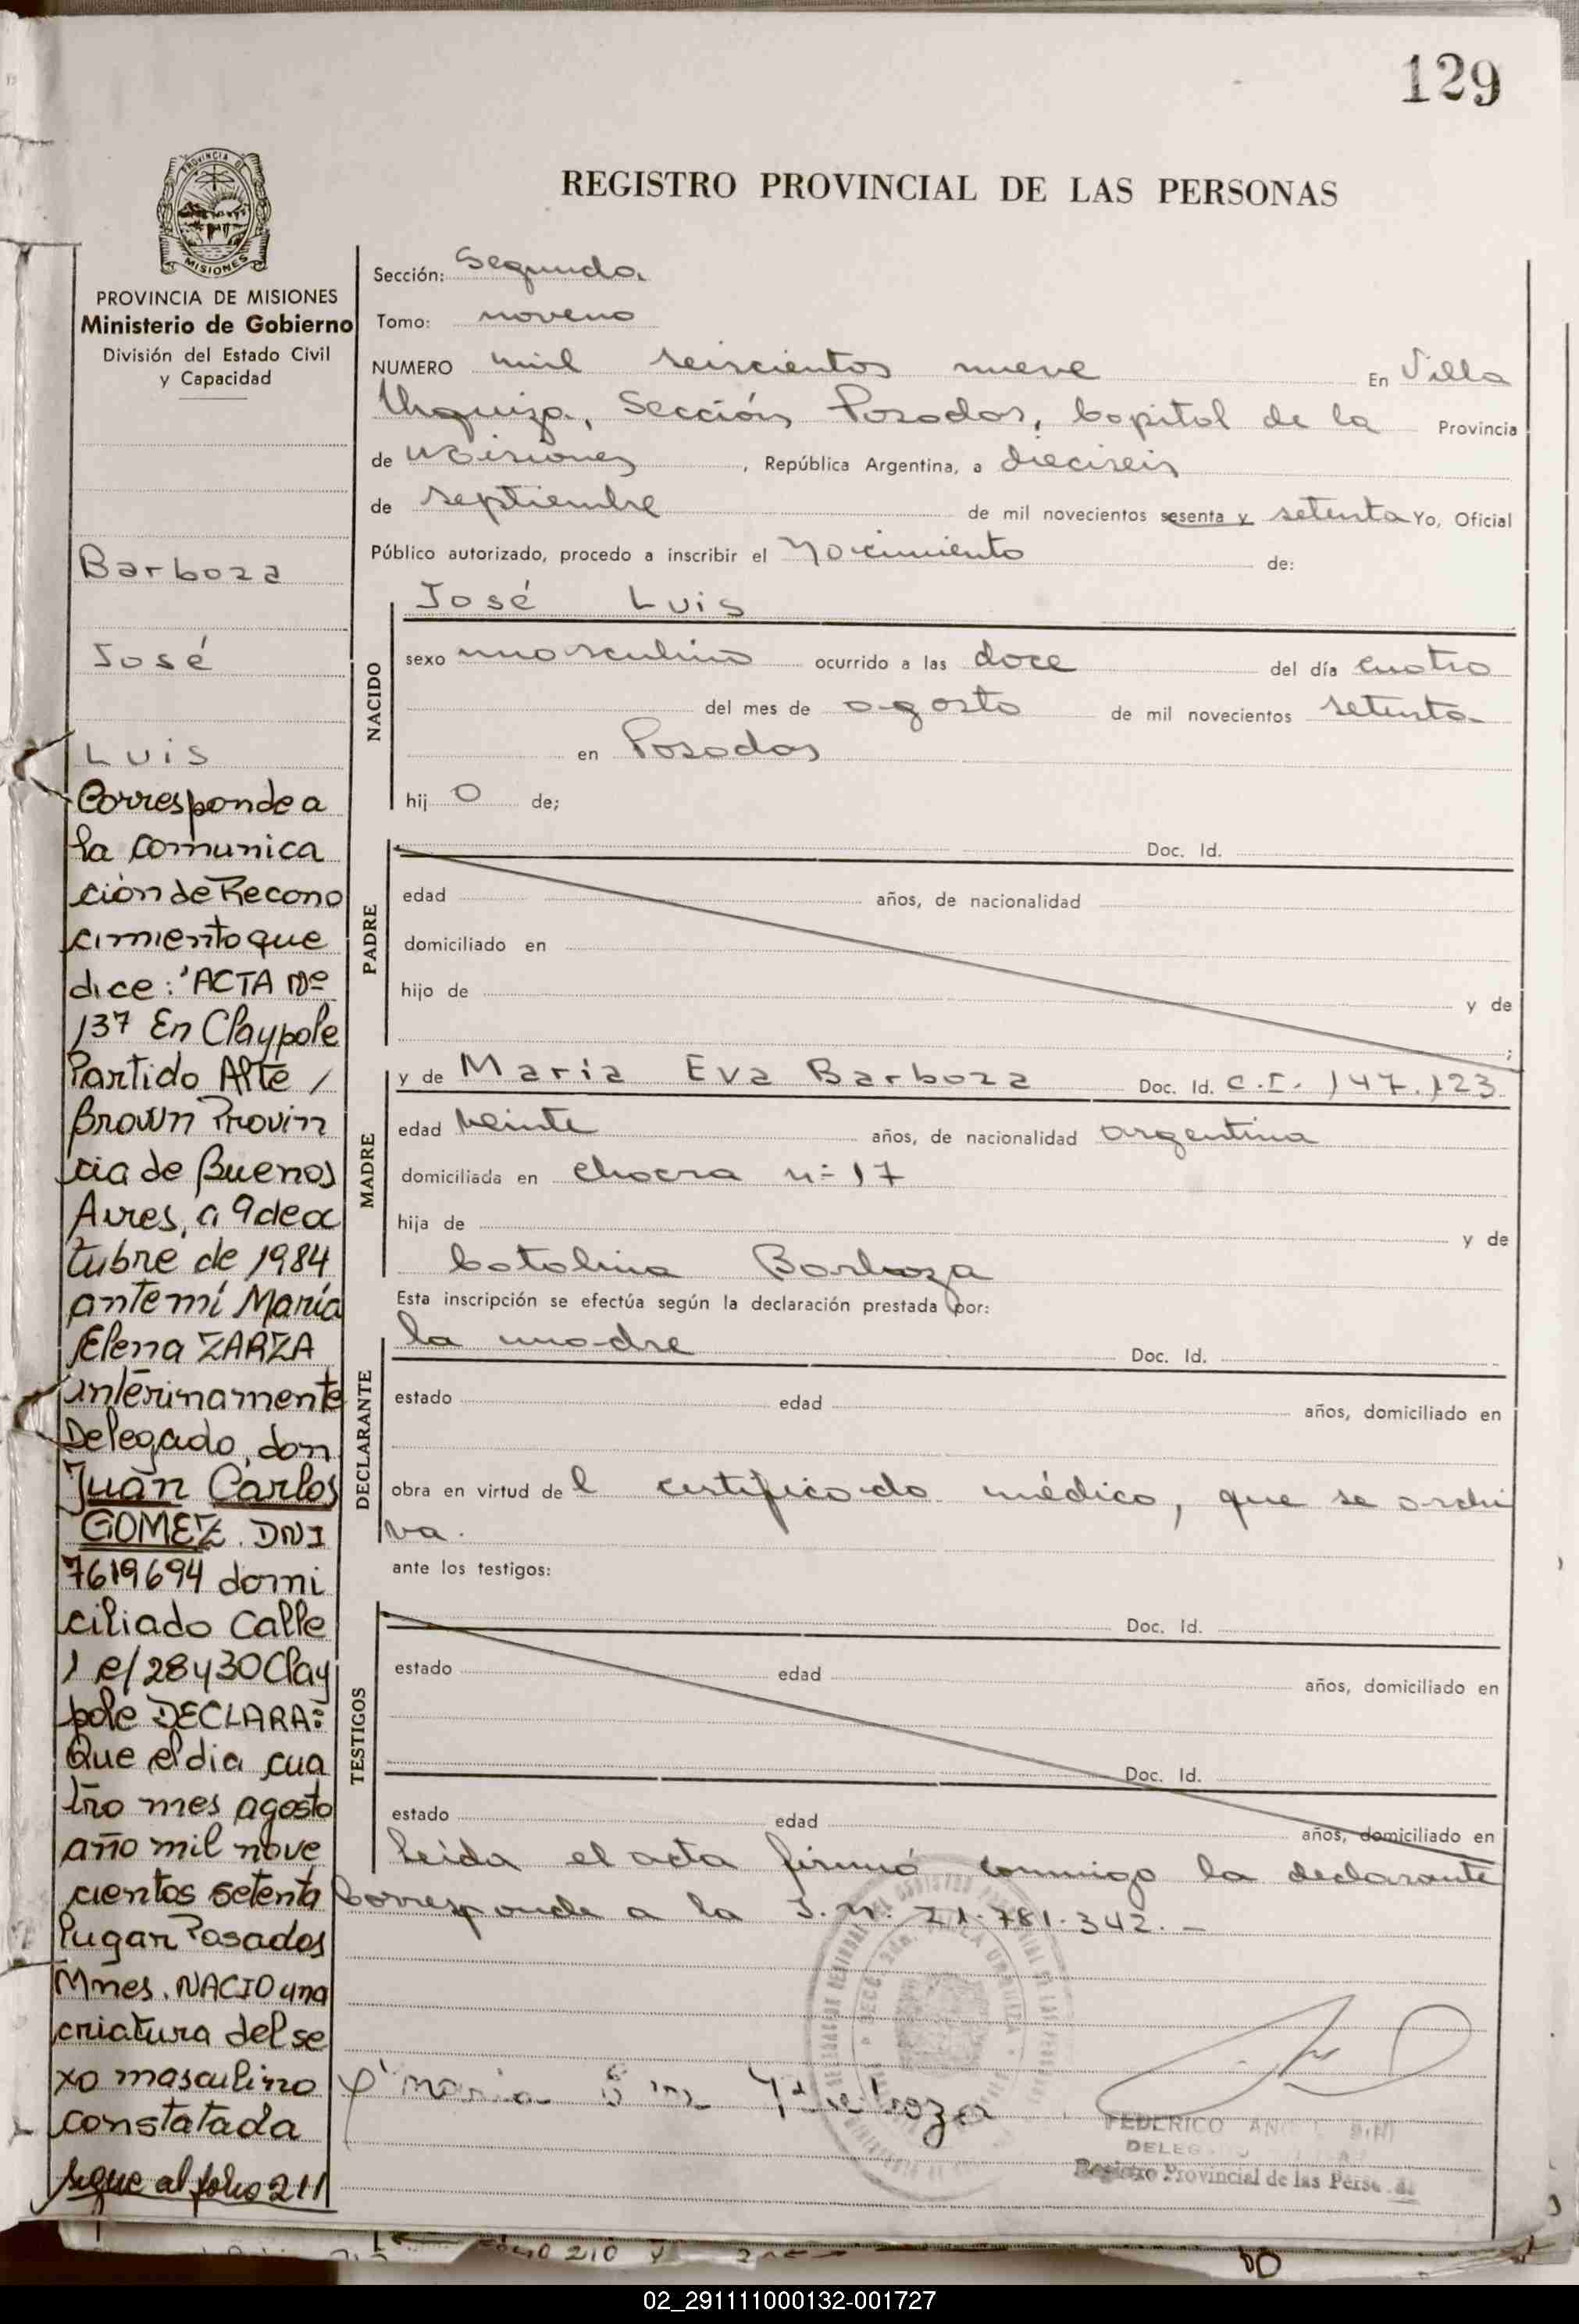 129
REGISTRO PROVINCIAL DE LAS PERSONAS
PROVINCIA DE
MISIONES
PROVINCIA DE MISIONES
Ministerio de Gobierno
División del Estado Civil
y Capacidad
Barboza
José
Luis
Corresponde a
la comunica
ción de Recono
cimiento que
dice: "ACTA Nº
137 En Claypole
Partido Alte /
Brown Provin
cia de Buenos
Aires, a 9 de oc
tubre de 1984
ante mí María
Elena ZARZA
interinamente
Delegado, don
Juan Carlos
GOMEZ. DNI
7619694 domi
ciliado Calle
1 e/ 28 y 30 Clay
pole DECLARA:
Que el dia cua
tro mes agosto
año mil nove
cientos setenta
lugar Posadas
Mnes. NACIO una
criatura del se
xo masculino
constatada
sigue al folio 211
Sección: Segunda
Tomo: noveno
NUMERO mil seiscientos nueve En Villa
Urquiza, Sección Posadas, Capital de la Provincia
de Misiones, República Argentina, a dieciseis
de septiembre de mil novecientos sesenta y setenta Yo, Oficial
Público autorizado, procedo a inscribir el Nacimiento de:
NACIDO
José Luis
sexo masculino ocurrido a las doce del día cuatro
del mes de agosto de mil novecientos setenta
en Posadas
hijo de;
PADRE
Doc. Id.
edad años, de nacionalidad
domiciliado en
hijo de y de
;
MADRE
y de María Eva Barboza Doc. Id. C.I. 147.123
edad veinte años, de nacionalidad argentina
domiciliada en chacra nº 17
hija de y de
Catalina Barboza
Esta inscripción se efectúa según la declaración prestada por:
DECLARANTE
la madre Doc. Id.
estado edad años, domiciliado en
obra en virtud del certificado médico, que se archi
va.
ante los testigos:
TESTIGOS
Doc. Id.
estado edad años, domiciliado en
Doc. Id.
estado edad años, domiciliado en
Leida el acta firmó conmigo la declarante
Corresponde a la I.N. 21.781.342. —
Maria Barboza
FEDERICO
DELEG
Registro Provincial de las Perso
folio 210 y
02_291111000132-001727